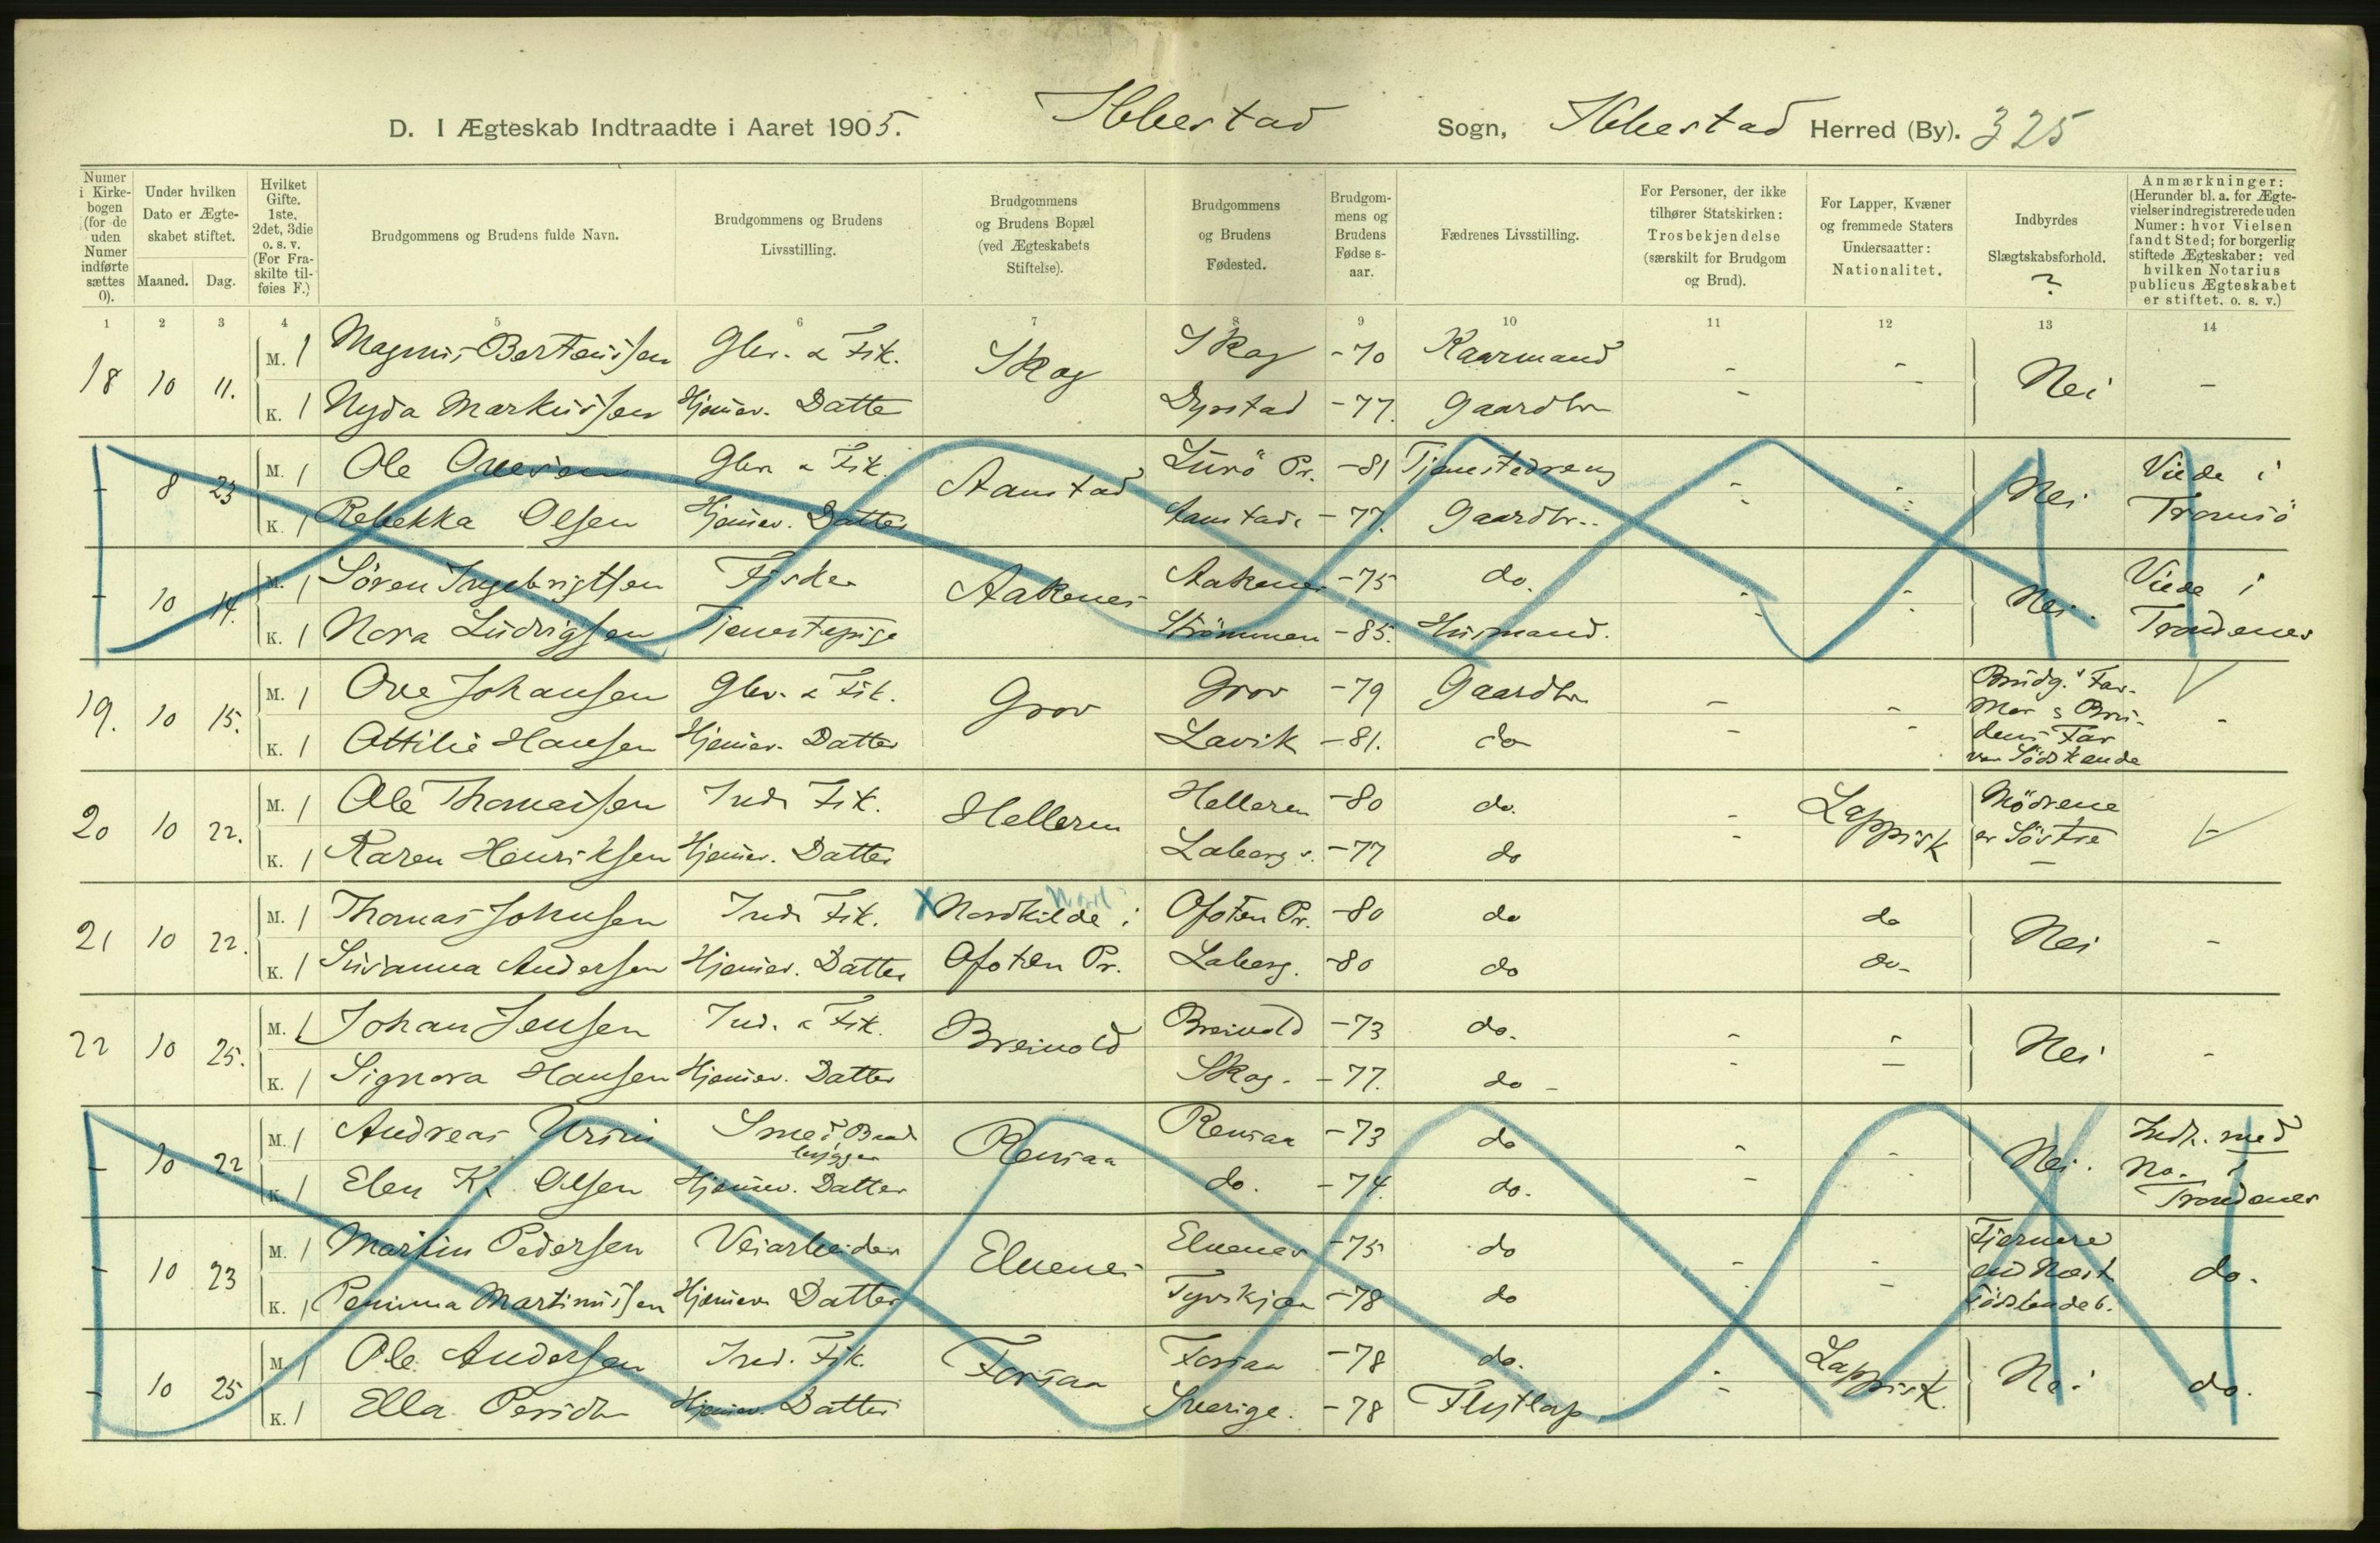 D. I Ægteskab Indtraadte i Aaret 1905. Ibbestad Sogn, Ibbestad Herred (By). 325
Numer i Kirkebogen (for de uden Numer indførte sættes 0).
Under hvilken Dato er Ægteskabet stiftet.
Maaned. Dag.
Hvilket Gifte. 1ste, 2det, 3die o. s. v. (For Fraskilte tilføies F.)
Brudgommens og Brudens fulde Navn.
Brudgommens og Brudens Livsstilling.
Brudgommens og Brudens Bopæl (ved Ægteskabets Stiftelse).
Brudgommens og Brudens Fødested.
Brudgommens og Brudens Fødselsaar.
Fædrenes Livsstilling.
For Personer, der ikke tilhører Statskirken: Trosbekjendelse (særskilt for Brudgom og Brud).
For Lapper, Kvæner og fremmede Staters Undersaatter: Nationalitet.
Indbyrdes Slægtskabsforhold. ?
Anmærkninger: (Herunder bl. a. for Ægtevielser indregistrerede uden Numer: hvor Vielsen fandt Sted; for borgerlig stiftede Ægteskaber: ved hvilken Notarius publicus Ægteskabet er stiftet. o. s. v.)
1 2 3 4 5 6 7 8 9 10 11 12 13 14
18 10 11. M. 1 Magnus Berteussen Gbr. & Fisk. Skog Skog -70 Kaarmand - - Nei -
K. 1 Nyda Markussen Hjemev. Datter Dyrstad -77. Gaardbr - -
- 8 23 M. 1 Ole Ovesen Gbr & Fisk. Aanstad Lurö Pr. -81 Tjenestedreng - - Nei Viede i
K. 1 Rebekka Olsen Hjemev. Datter Aanstad -77. Gaardbr. - - Tromsö
- 10 14. M. 1 Sören Ingebrigtsen Fisker Aakenes Aakenes -75 do. - - Nei. Viede i
K. 1 Nora Ludvigsen Tjenestepige Strömmen -85. Husmand. - - Trondenes
19. 10 15. M. 1 Ove Johansen Gbr. & Fisk. Grov Grov -79 Gaardbr - - Brudg.s Far-
K. 1 Ottilie Hansen Hjemev. Datter Lavik -81. do - - Mor & Bru- -
dens Far
var Södskende
20 10 22. M. 1 Ole Thomassen Inds Fisk. Helleren Helleren -80 do. - Lappisk Mödrene -
K. 1 Karen Henriksen Hjemev. Datter Laberg -77 do - er Söstre
21 10 22. M. 1 Thomas Johnsen Inds Fisk. X Nordkilde i Ofoten Pr. -80 do do Nei -
K. 1 Susanna Andersen Hjemev. Datter Ofoten Pr. Laberg. -80 do do-
22 10 25. M. 1 Johan Jensen Ind. & Fisk. Breivold Breivold -73 do. - - Nei -
K. 1 Signora Hansen Hjemev. Datter Skog. -77. do - - -
- 10 22 M. 1 Andreas Ursin Smed, Baad- Rensaa Rensaa -73 do - - Nei. Indk. med
bygger
K. 1 Elen K. Olsen Hjemev. Datter do. -74. do. - - No. i
Trondenes
- 10 23 M. 1 Martin Pedersen Veiarbeider Elvenes Elvenes -75 do - - Fjernere do.
K. 1 Penina Martinussen Hjemev. Datter Tyvskjær -78 do - - end Næst
Södskendeb.
- 10 25 M. 1 Ole Andersen Ind. Fisk. Forsaa Forsaa -78 do. - Lappisk. Nei do.
K. 1 Ella Persdr Hjemev. Datter Sverige. -78 Flytlap -